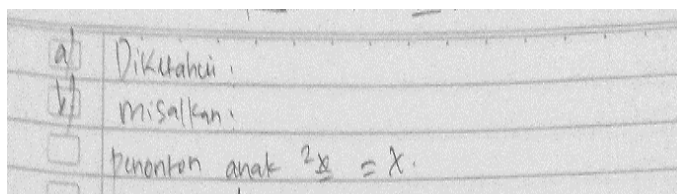 a) Diketahui.
b) misalkan.
penonton anak² = x.